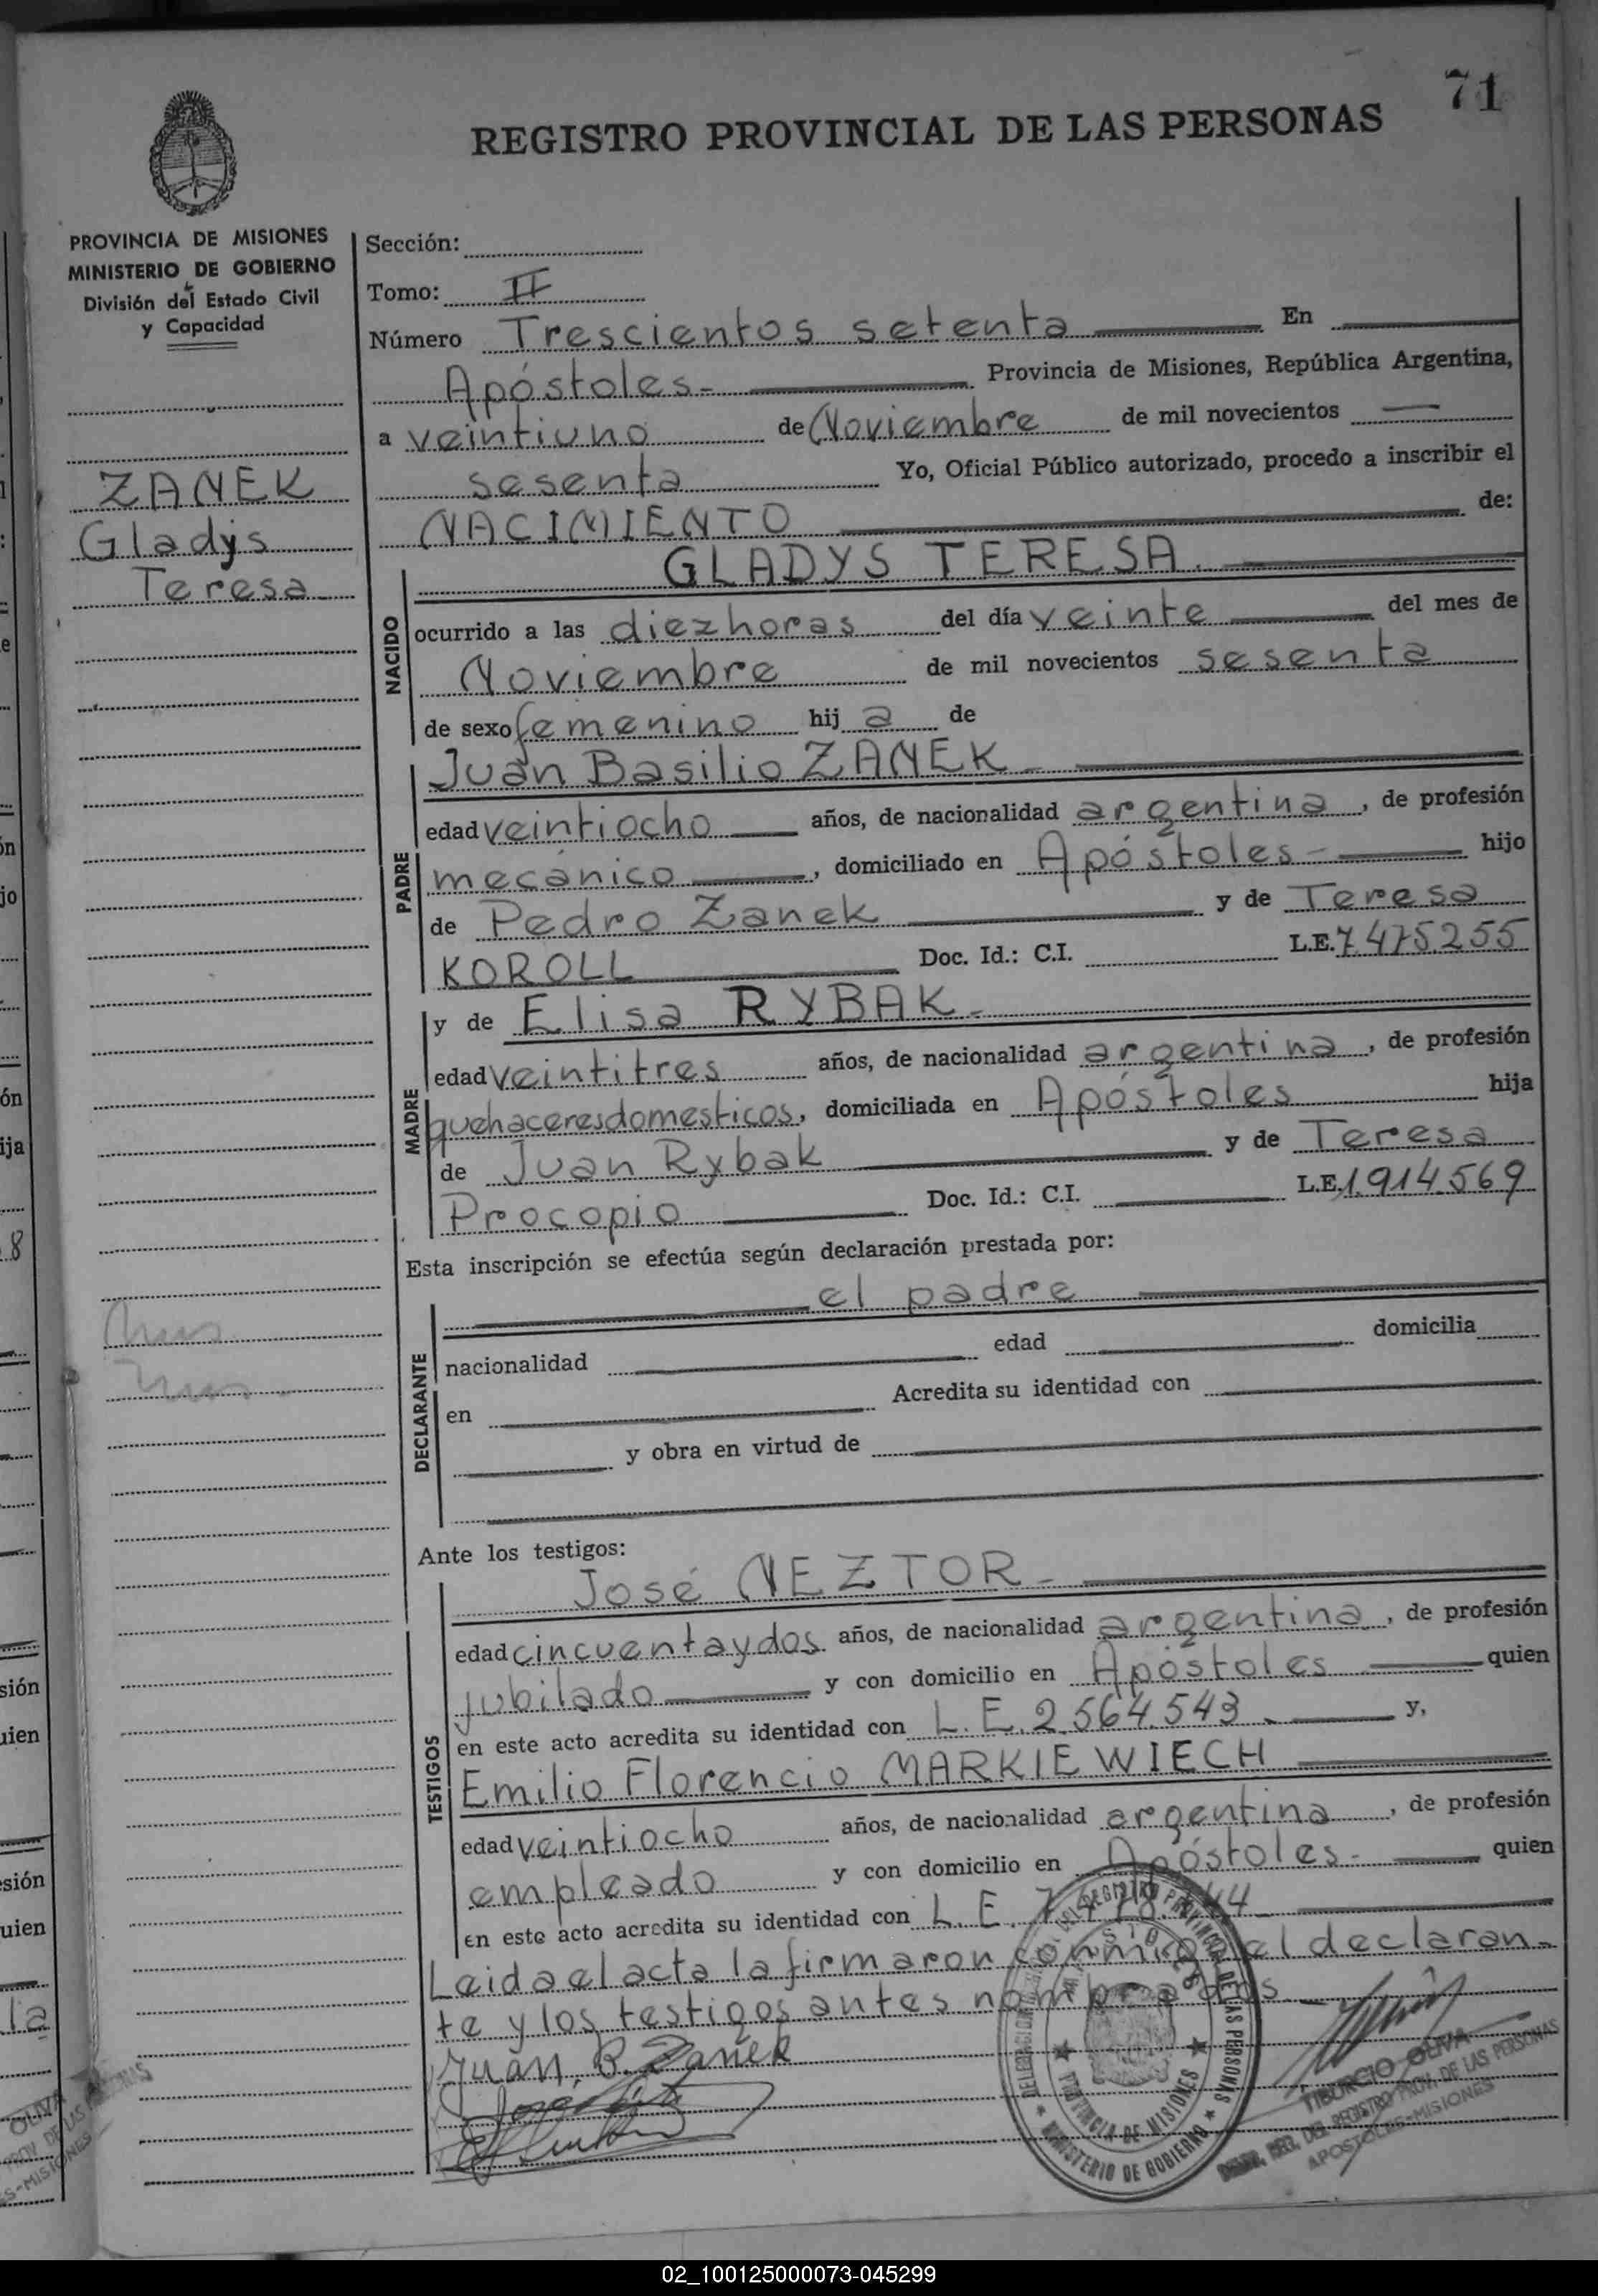 71
REGISTRO PROVINCIAL DE LAS PERSONAS
PROVINCIA DE MISIONES
MINISTERIO DE GOBIERNO
División del Estado Civil
y Capacidad
ZANEK
Gladys
Teresa
Sección:
Tomo: II
Número Trescientos setenta En
Apóstoles- Provincia de Misiones, República Argentina,
a veintiuno de Noviembre de mil novecientos
sesenta Yo, Oficial Público autorizado, procedo a inscribir el
NACIMIENTO de:
NACIDO
GLADYS TERESA.
ocurrido a las diez horas del día veinte del mes de
Noviembre de mil novecientos sesenta
de sexo femenino hij a de
PADRE
Juan Basilio ZANEK-
edad veintiocho años, de nacionalidad argentina, de profesión
mecánico, domiciliado en Apóstoles- hijo
de Pedro Zanek y de Teresa
KOROLL Doc. Id.: C.I. L.E. 7.475.255
MADRE
y de Elisa RYBAK-
edad veintitres años, de nacionalidad argentina, de profesión
quehaceres domesticos, domiciliada en Apóstoles hija
de Juan Rybak y de Teresa
Procopio Doc. Id.: C.I. L.E. 1.914.569
Esta inscripción se efectúa según declaración prestada por:
DECLARANTE
el padre
nacionalidad edad domicilia
en Acredita su identidad con
y obra en virtud de
Ante los testigos:
TESTIGOS
José NEZTOR-
edad cincuenta y dos años, de nacionalidad argentina, de profesión
jubilado y con domicilio en Apóstoles quien
en este acto acredita su identidad con L.E. 2.564.543- y,
Emilio Florencio MARKIEWIECH
edad veintiocho años, de nacionalidad argentina, de profesión
empleado y con domicilio en Apóstoles- quien
en este acto acredita su identidad con L.E.
Leida el acta la firmaron conmigo el declaran-
te y los testigos antes nombrados
Juan. B. Zanek
DEL REGISTRO PROVINCIAL DE LAS PERSONAS
MINISTERIO DE GOBIERNO
PROVINCIA DE MISIONES
TIBURCIO OLIVA
DEL REGISTRO PROV. DE LAS PERSONAS
APOSTOLES-MISIONES
02_100125000073-045299